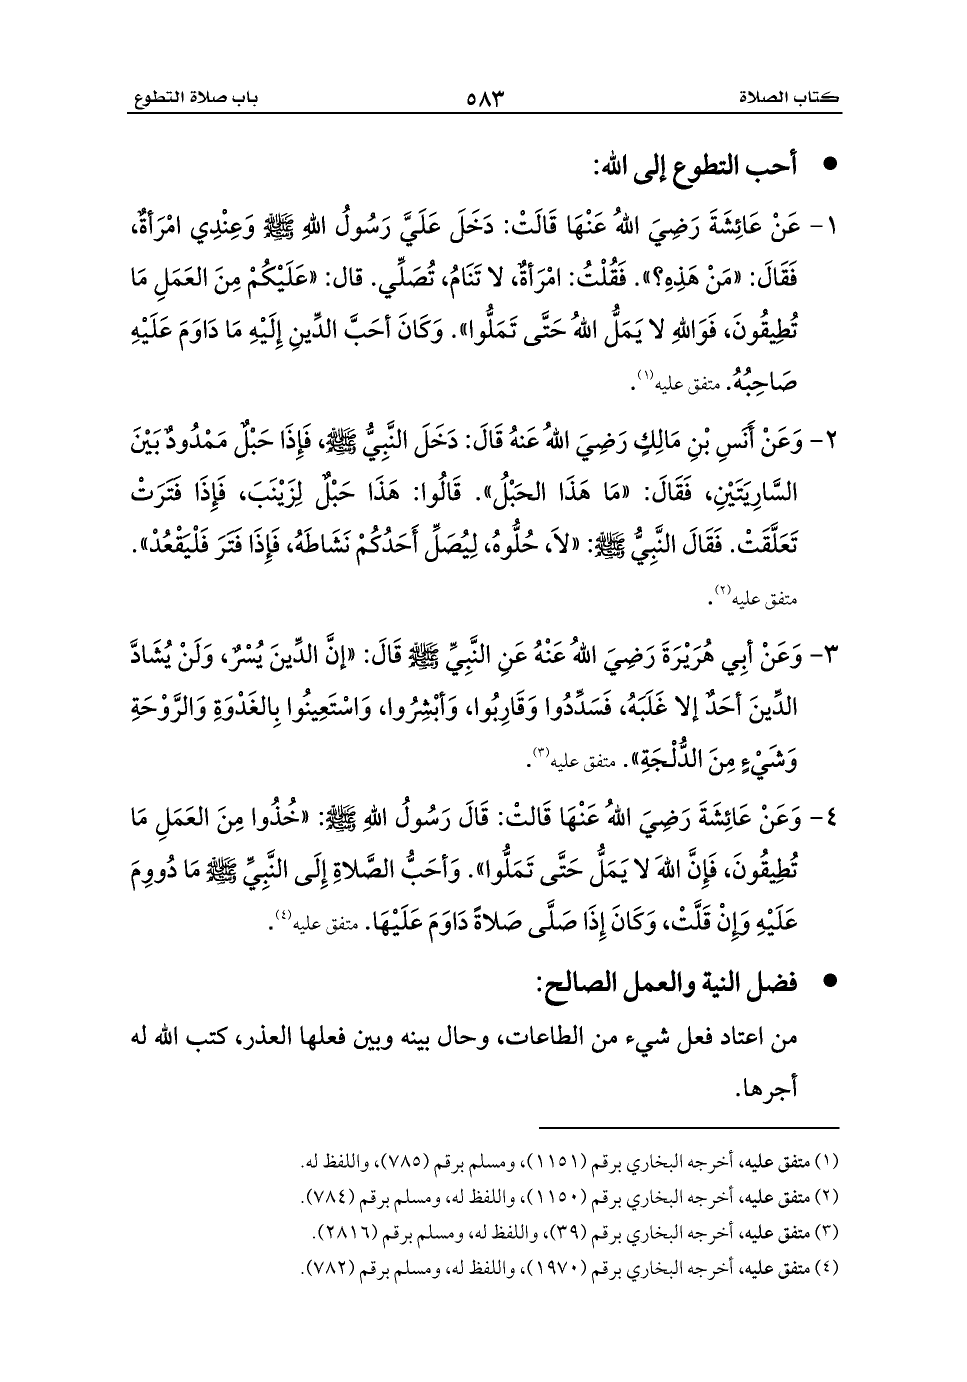 كتاب الصلاة ٥٨٣ باب صلاة التطوع
● أحب التطوع إلى الله:
١- عَنْ عَائِشَةَ رَضِيَ اللهُ عَنْهَا قَالَتْ: دَخَلَ عَلَيَّ رَسُولُ اللهِ ﷺ وَعِنْدِي امْرَأةٌ،
فَقَالَ: «مَنْ هَذِهِ؟». فَقُلْتُ: امْرَأةٌ، لا تَنَامُ، تُصَلِّي. قال: «عَلَيْكُمْ مِنَ العَمَلِ مَا
تُطِيقُونَ، فَوَاللهِ لا يَمَلُّ اللهُ حَتَّى تَمَلُّوا». وَكَانَ أحَبَّ الدِّينِ إلَيْهِ مَا دَاوَمَ عَلَيْهِ
صَاحِبُهُ. متفق عليه(١).
٢- وَعَنْ أَنَسِ بْنِ مَالِكٍ رَضِيَ اللهُ عَنهُ قَالَ: دَخَلَ النَّبِيُّ ﷺ، فَإذَا حَبْلٌ مَمْدُودٌ بَيْنَ
السَّارِيَتَيْنِ، فَقَالَ: «مَا هَذَا الحَبْلُ». قَالُوا: هَذَا حَبْلٌ لِزَيْنَبَ، فَإذَا فَتَرَتْ
تَعَلَّقَتْ. فَقَالَ النَّبِيُّ ﷺ: «لاَ، حُلُّوهُ، لِيُصَلِّ أَحَدُكُمْ نَشَاطَهُ، فَإذَا فَتَرَ فَلْيَقْعُدْ».
متفق عليه(٢).
٣- وَعَنْ أبِي هُرَيْرَةَ رَضِيَ اللهُ عَنْهُ عَنِ النَّبِيِّ ﷺ قَالَ: «إنَّ الدِّينَ يُسْرٌ، وَلَنْ يُشَادَّ
الدِّينَ أحَدٌ إلا غَلَبَهُ، فَسَدِّدُوا وَقَارِبُوا، وَأبْشِرُوا، وَاسْتَعِينُوا بِالغَدْوَةِ وَالرَّوْحَةِ
وَشَيْءٍ مِنَ الدُّلْجَةِ». متفق عليه(٣).
٤- وَعَنْ عَائِشَةَ رَضِيَ اللهُ عَنْهَا قَالتْ: قَالَ رَسُولُ اللهِ ﷺ: «خُذُوا مِنَ العَمَلِ مَا
تُطِيقُونَ، فَإنَّ اللهَ لا يَمَلُّ حَتَّى تَمَلُّوا». وَأحَبُّ الصَّلاةِ إلَى النَّبِيِّ ﷺ مَا دُووِمَ
عَلَيْهِ وَإنْ قَلَّتْ، وَكَانَ إذَا صَلَّى صَلاةً دَاوَمَ عَلَيْهَا. متفق عليه(٤).
● فضل النية والعمل الصالح:
من اعتاد فعل شيء من الطاعات، وحال بينه وبين فعلها العذر، كتب الله له
أجرها.
(١) متفق عليه، أخرجه البخاري برقم (١١٥١)، ومسلم برقم (٧٨٥)، واللفظ له.
(٢) متفق عليه، أخرجه البخاري برقم (١١٥٠)، واللفظ له، ومسلم برقم (٧٨٤).
(٣) متفق عليه، أخرجه البخاري برقم (٣٩)، واللفظ له، ومسلم برقم (٢٨١٦).
(٤) متفق عليه، أخرجه البخاري برقم (١٩٧٠)، واللفظ له، ومسلم برقم (٧٨٢).